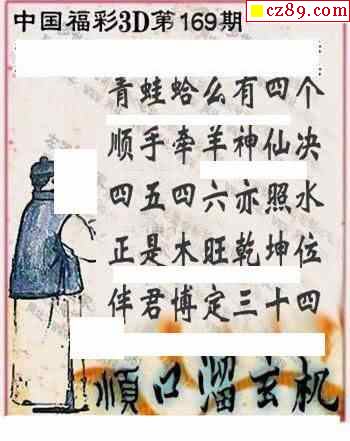 cz89.com
中国福彩3D第169期
青蛙蛤么有四个
顺手牵羊神仙决
四五四六亦照水
正是木旺乾坤位
伴君博定三十四
順口溜玄机